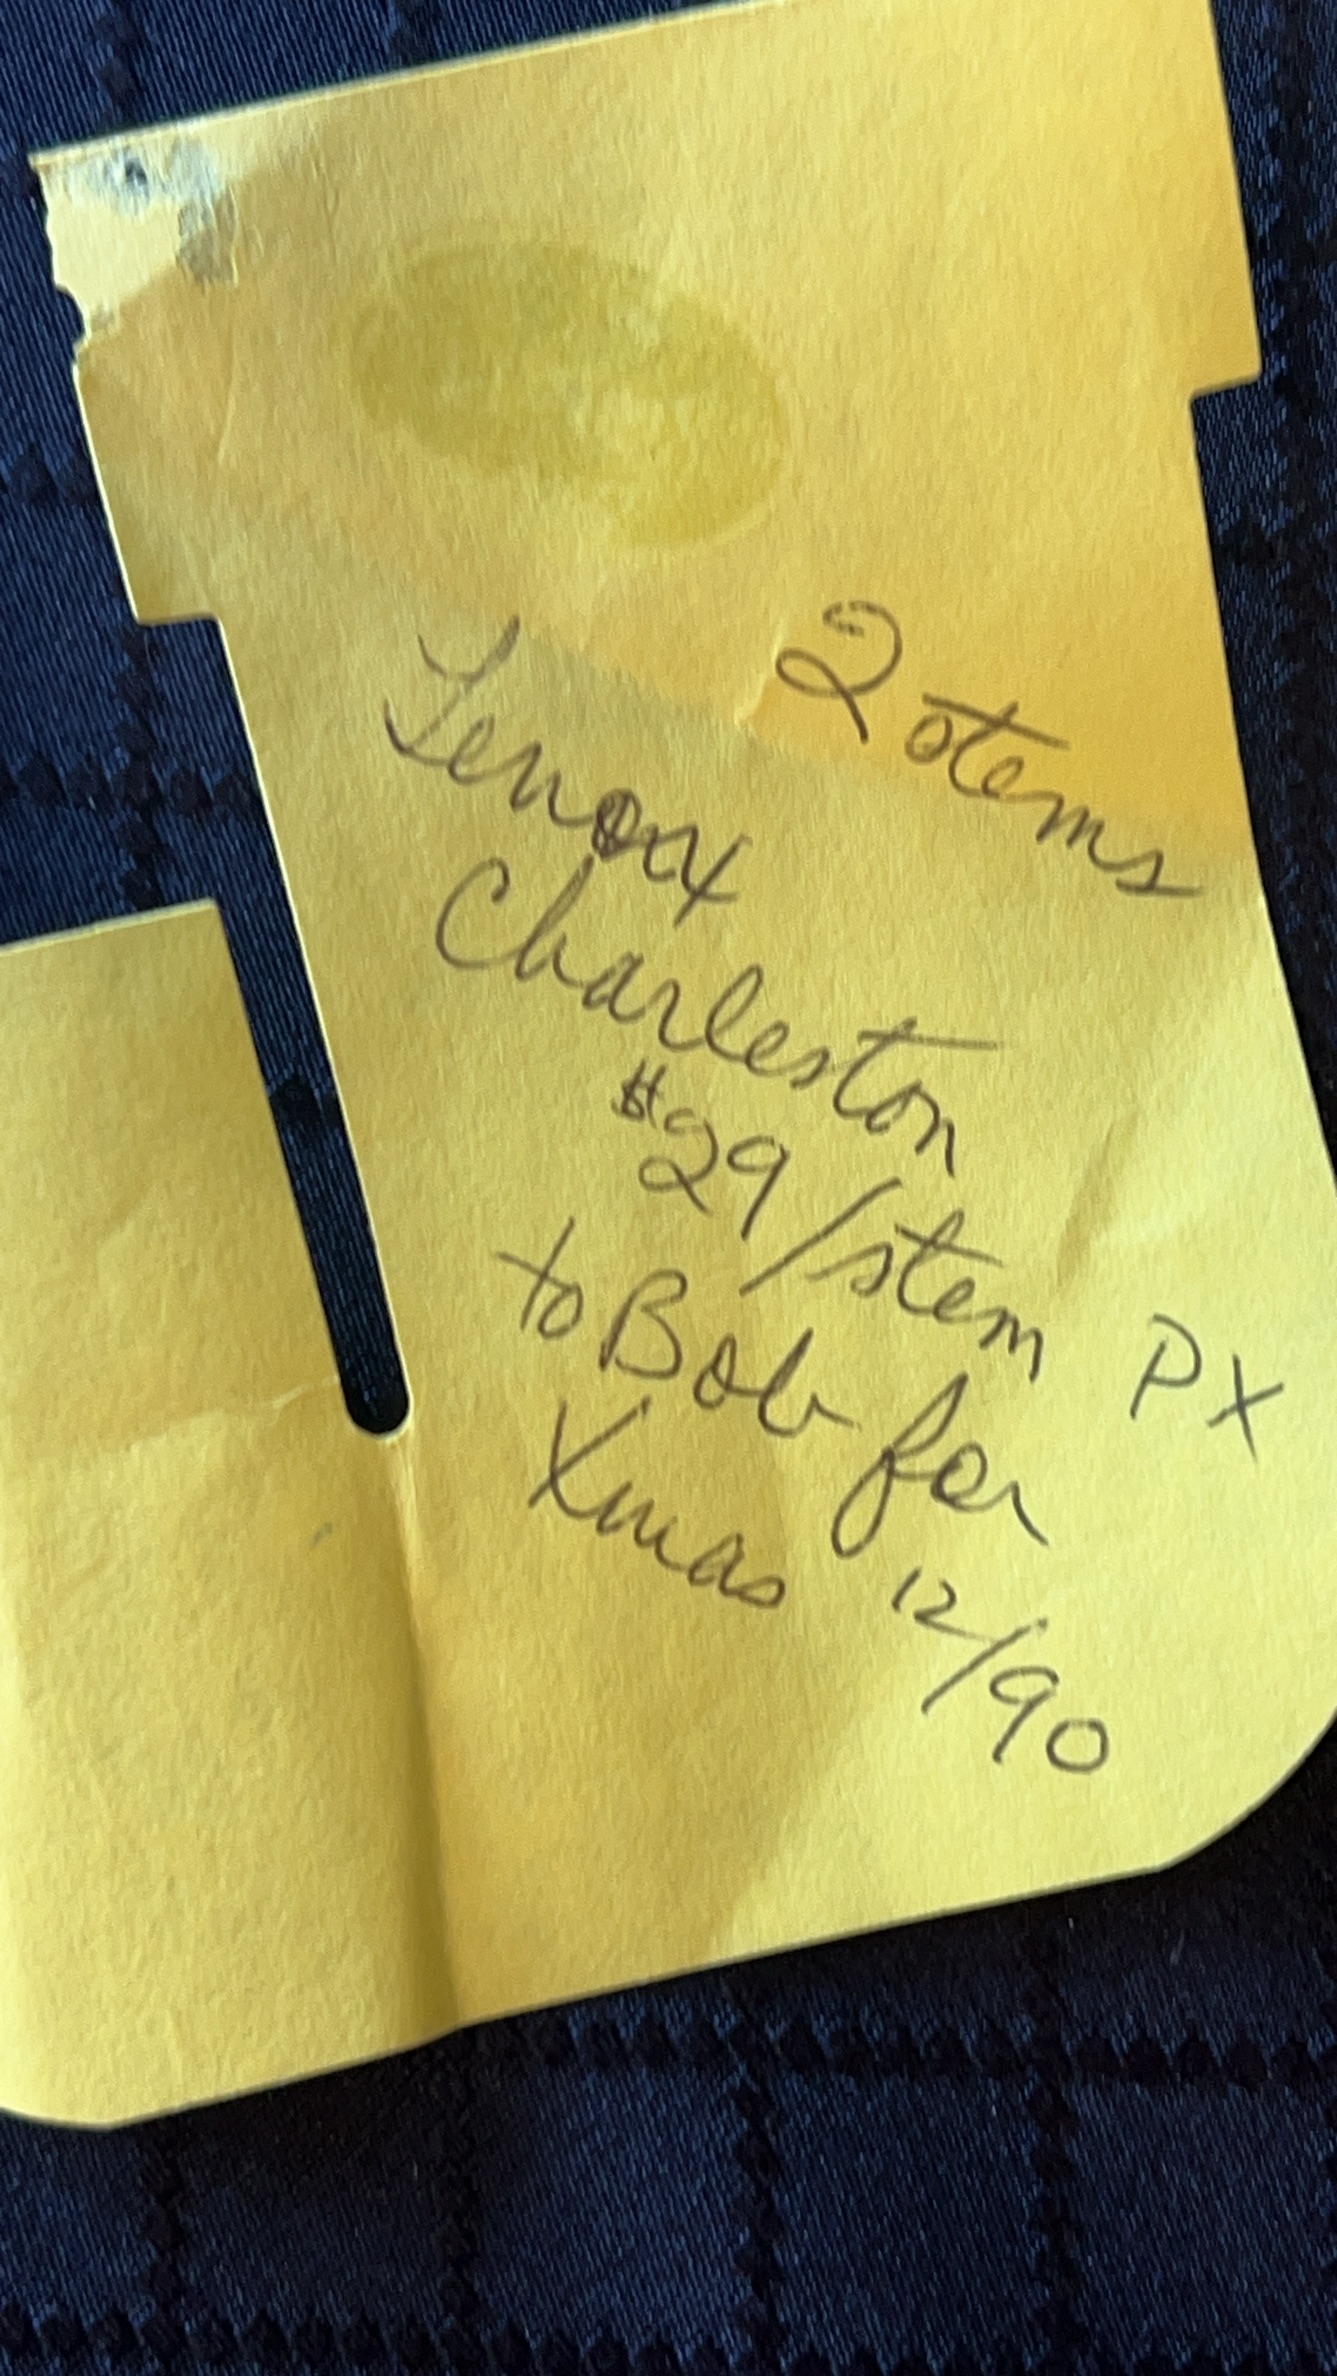 2 stems
Lenox
Charleston
$29/stem PX
to Bob for
Xmas 12/90